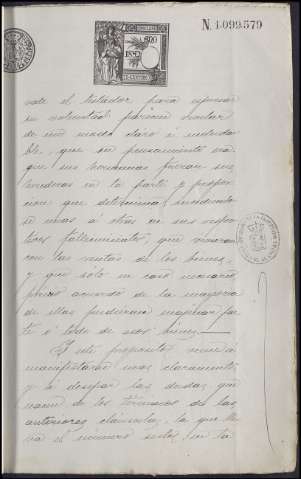 N. 1.099.579
vale el testador para expresar
su voluntad parecen brotar
de un modo claro é indudable
ble, que su pensamiento era
que sus hermanas fueran sus
herederas en la parte y propor
cion que determina, sucediendo
se unas á otras en sus respec
tivos fallecimientos, que vivieran
con las rentas de los bienes,
y que sólo en caso necesario
previo acuerdo de la mayoria
de ellas pudieran enajenar par
te ó todo de esos bienes.
Y este propósito viene á
manifestarse mas claramente
y á disipar las dudas que
nacen de los términos de las
anteriores cláusulas, la que lle
va el número sesto, en la